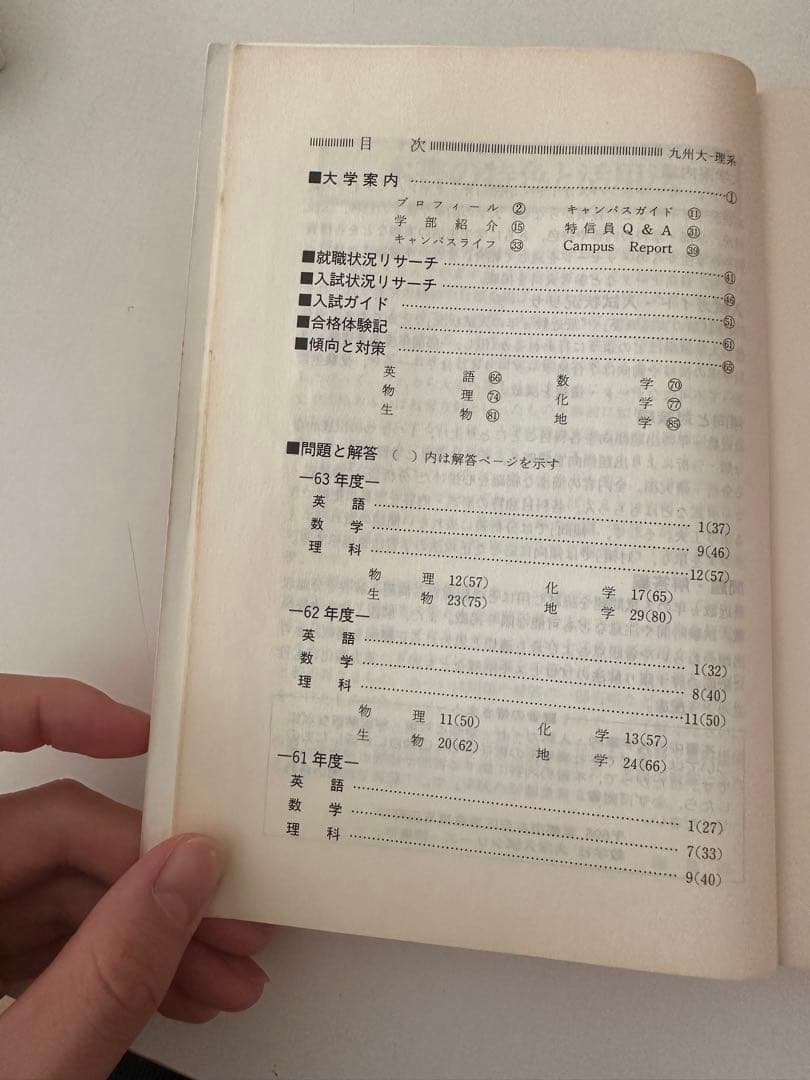 目 次 九州大-理系
■大学案内 ①
プロフィール ② キャンパスガイド ⑪
学部紹介 ⑮ 特信員Q&A ㉛
キャンパスライフ ㉝ Campus Report ㊴
■就職状況リサーチ ㊶
■入試状況リサーチ ㊻
■入試ガイド 51
■合格体験記 61
■傾向と対策 65
英 語 66 数 学 70
物 理 74 化 学 77
生 物 81 地 学 85
■問題と解答 ( )内は解答ページを示す
―63年度―
英 語 1(37)
数 学 9(46)
理 科 12(57)
物 理 12(57) 化 学 17(65)
生 物 23(75) 地 学 29(80)
―62年度―
英 語 1(32)
数 学 8(40)
理 科 11(50)
物 理 11(50) 化 学 13(57)
生 物 20(62) 地 学 24(66)
―61年度―
英 語 1(27)
数 学 7(33)
理 科 9(40)